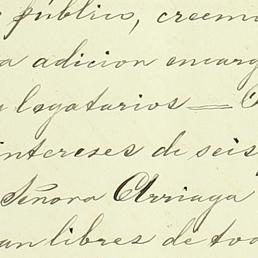 público, creemo
a adicion encarg
legatarios —
intereses de seis
Señora Arriaga
an libres de tod